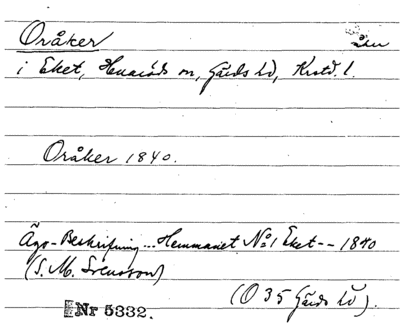 Oråker åker
i Eket, Huaröds sn, Gärds hd, Krstd. l.
Oråker 1840.
Ägo-Beskrifning... Hemmanet No: 1 Eket -- 1840
(S. M. Svensson)
(O 35 Gärds hd).
Nr 5332.